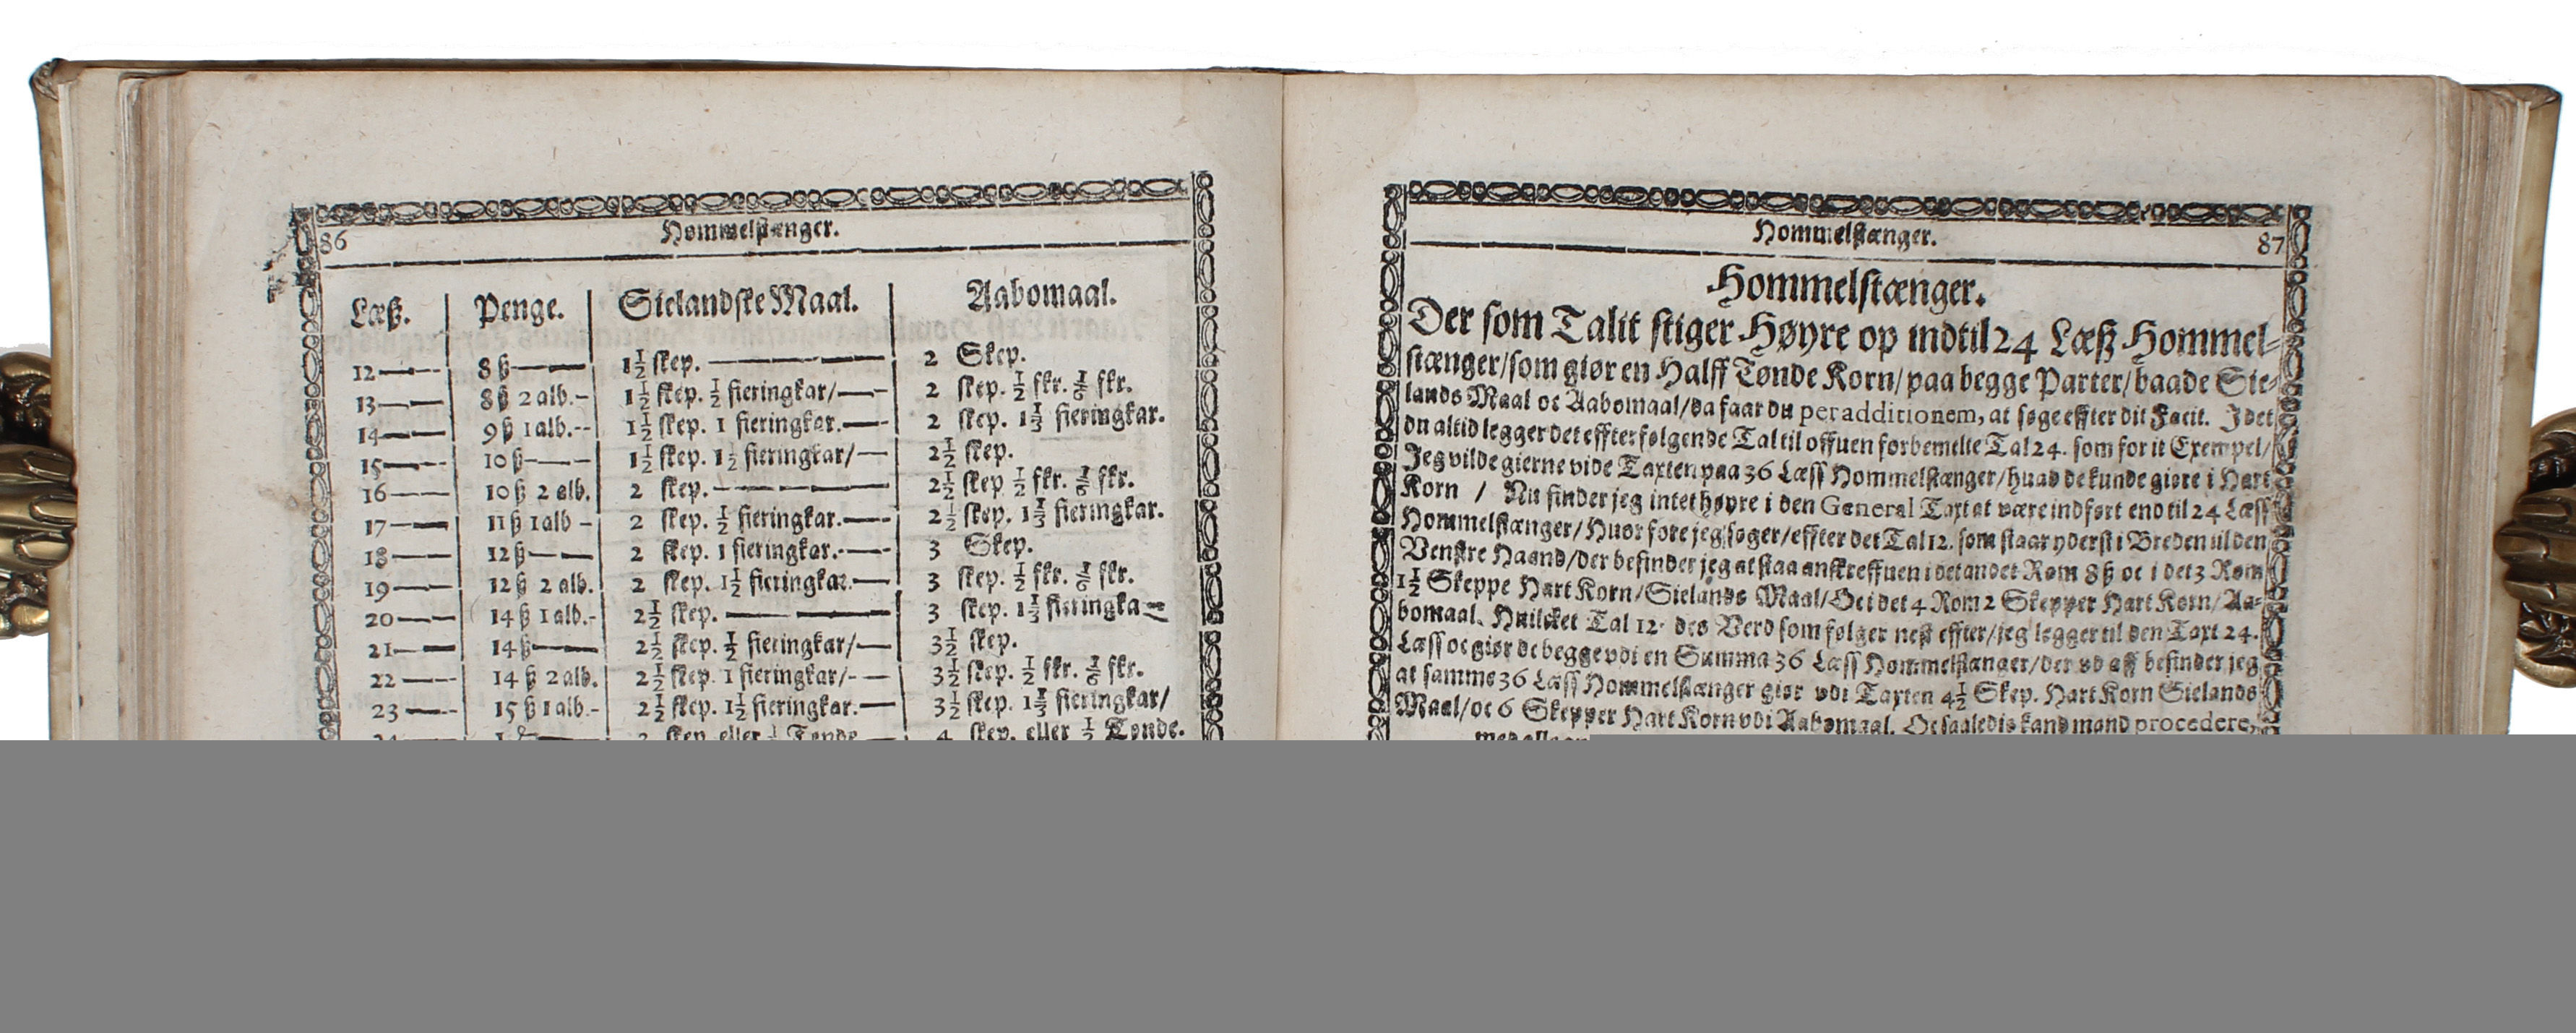 86
Hommelstænger.
Læß. Penge. Sielandske Maal. Aabomaal.
12 8 ß 1½ skep. 2 Skep.
13 8 ß 2 alb. 1½ skep. ½ fieringkar/ 2 skep. ½ fkr. ⅙ fkr.
14 9 ß 1 alb. 1½ skep. 1 fieringkar. 2 skep. 1⅓ fieringkar.
15 10 ß 1½ skep. 1½ fieringkar/ 2½ skep.
16 10 ß 2 alb. 2 skep. 2½ skep ½ fkr. ⅙ fkr.
17 11 ß 1 alb 2 skep. ½ fieringkar. 2½ skep. 1⅓ fieringkar.
18 12 ß 2 skep. 1 fieringkar. 3 Skep.
19 12 ß 2 alb. 2 skep. 1½ fieringkar. 3 skep. ½ fkr. ⅙ fkr.
20 14 ß 1 alb. 2½ skep. 3 skep. 1⅓ fieringka
21 14 ß 2½ skep. ½ fieringkar/ 3½ skep.
22 14 ß 2 alb. 2½ skep. 1 fieringkar/ 3½ skep. ½ fkr. ⅙ fkr.
23 15 ß 1 alb. 2½ skep. 1½ fieringkar. 3½ skep. 1⅓ fieringkar/
skep eller Tønde 4 skep. eller ½ Tønde.
Hommelstænger.
87
Hommelstænger.
Der som Talit stiger Høyre op indtil 24 Læß Hommel-
stænger/ som giør en Halff Tønde Korn/ paa begge Parter/ baade Sie-
lands Maal oc Aabomaal/ da faar du per additionem, at søge effter dit Facit. I det
du altid legger det effterfølgende Tal til offuen forbemelte Tal 24. som for it Exempel/
Jeg vilde gierne vide Taxten paa 36 Læss Hommelstænger/ huad de kunde giøre i Hart
Korn / Nu finder jeg intet høyre i den General Taxt at være indført end til 24 Læss
Hommelstænger/ Huor fore jeg søger/ effter det Tal 12. som staar yderst i Breden til den
Venstre Haand/ der befinder jeg at staa anskreffuen i det andet Rom 8 ß oc i det 3 Rom
1½ Skeppe Hart Korn/ Sielands Maal/ Oc i det 4 Rom 2 Skepper Hart Korn/ Aa-
bomaal. Huilcket Tal 12. des Verd som følger nest effter/ jeg legger til den Taxt 24.
Læss oc giør de begge vdi en Summa 36 Læss Hommelstænger/ der vd aff befinder jeg
at samme 36 Læss Hommelstænger giør vdi Taxten 4½ Skep. Hart Korn Sielands
Maal/ oc 6 Skepper Hart Korn vdi Aabomaal. Oc saaledis kand mand procedere,